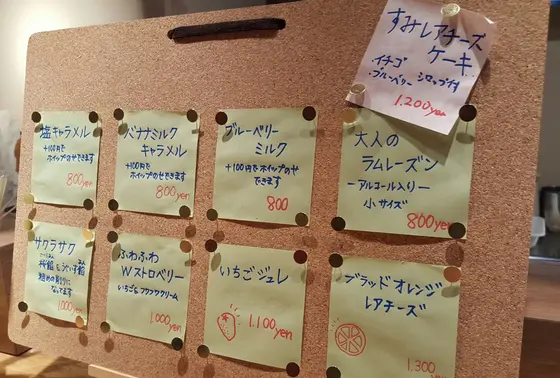 すみレアチーズ
ケーキ
イチゴ
ブルーベリー シロップ付
1.200yen
塩キャラメル
+100円で
ホイップのせできます
800yen
バナナミルク
キャラメル
+100円で
ホイップのせできます
800yen
ブルーベリー
ミルク
+100円でホイップのせ
できます
800
大人の
ラムレーズン
ーアルコール入りー
小サイズ
800yen
サクラサク
桜餡
なってます
1000yen
ふわふわ
Wストロベリー
いちご& フワフワクリーム
1.000yen
いちごジュレ
1.100yen
ブラッドオレンジ
レアチーズ
1.300